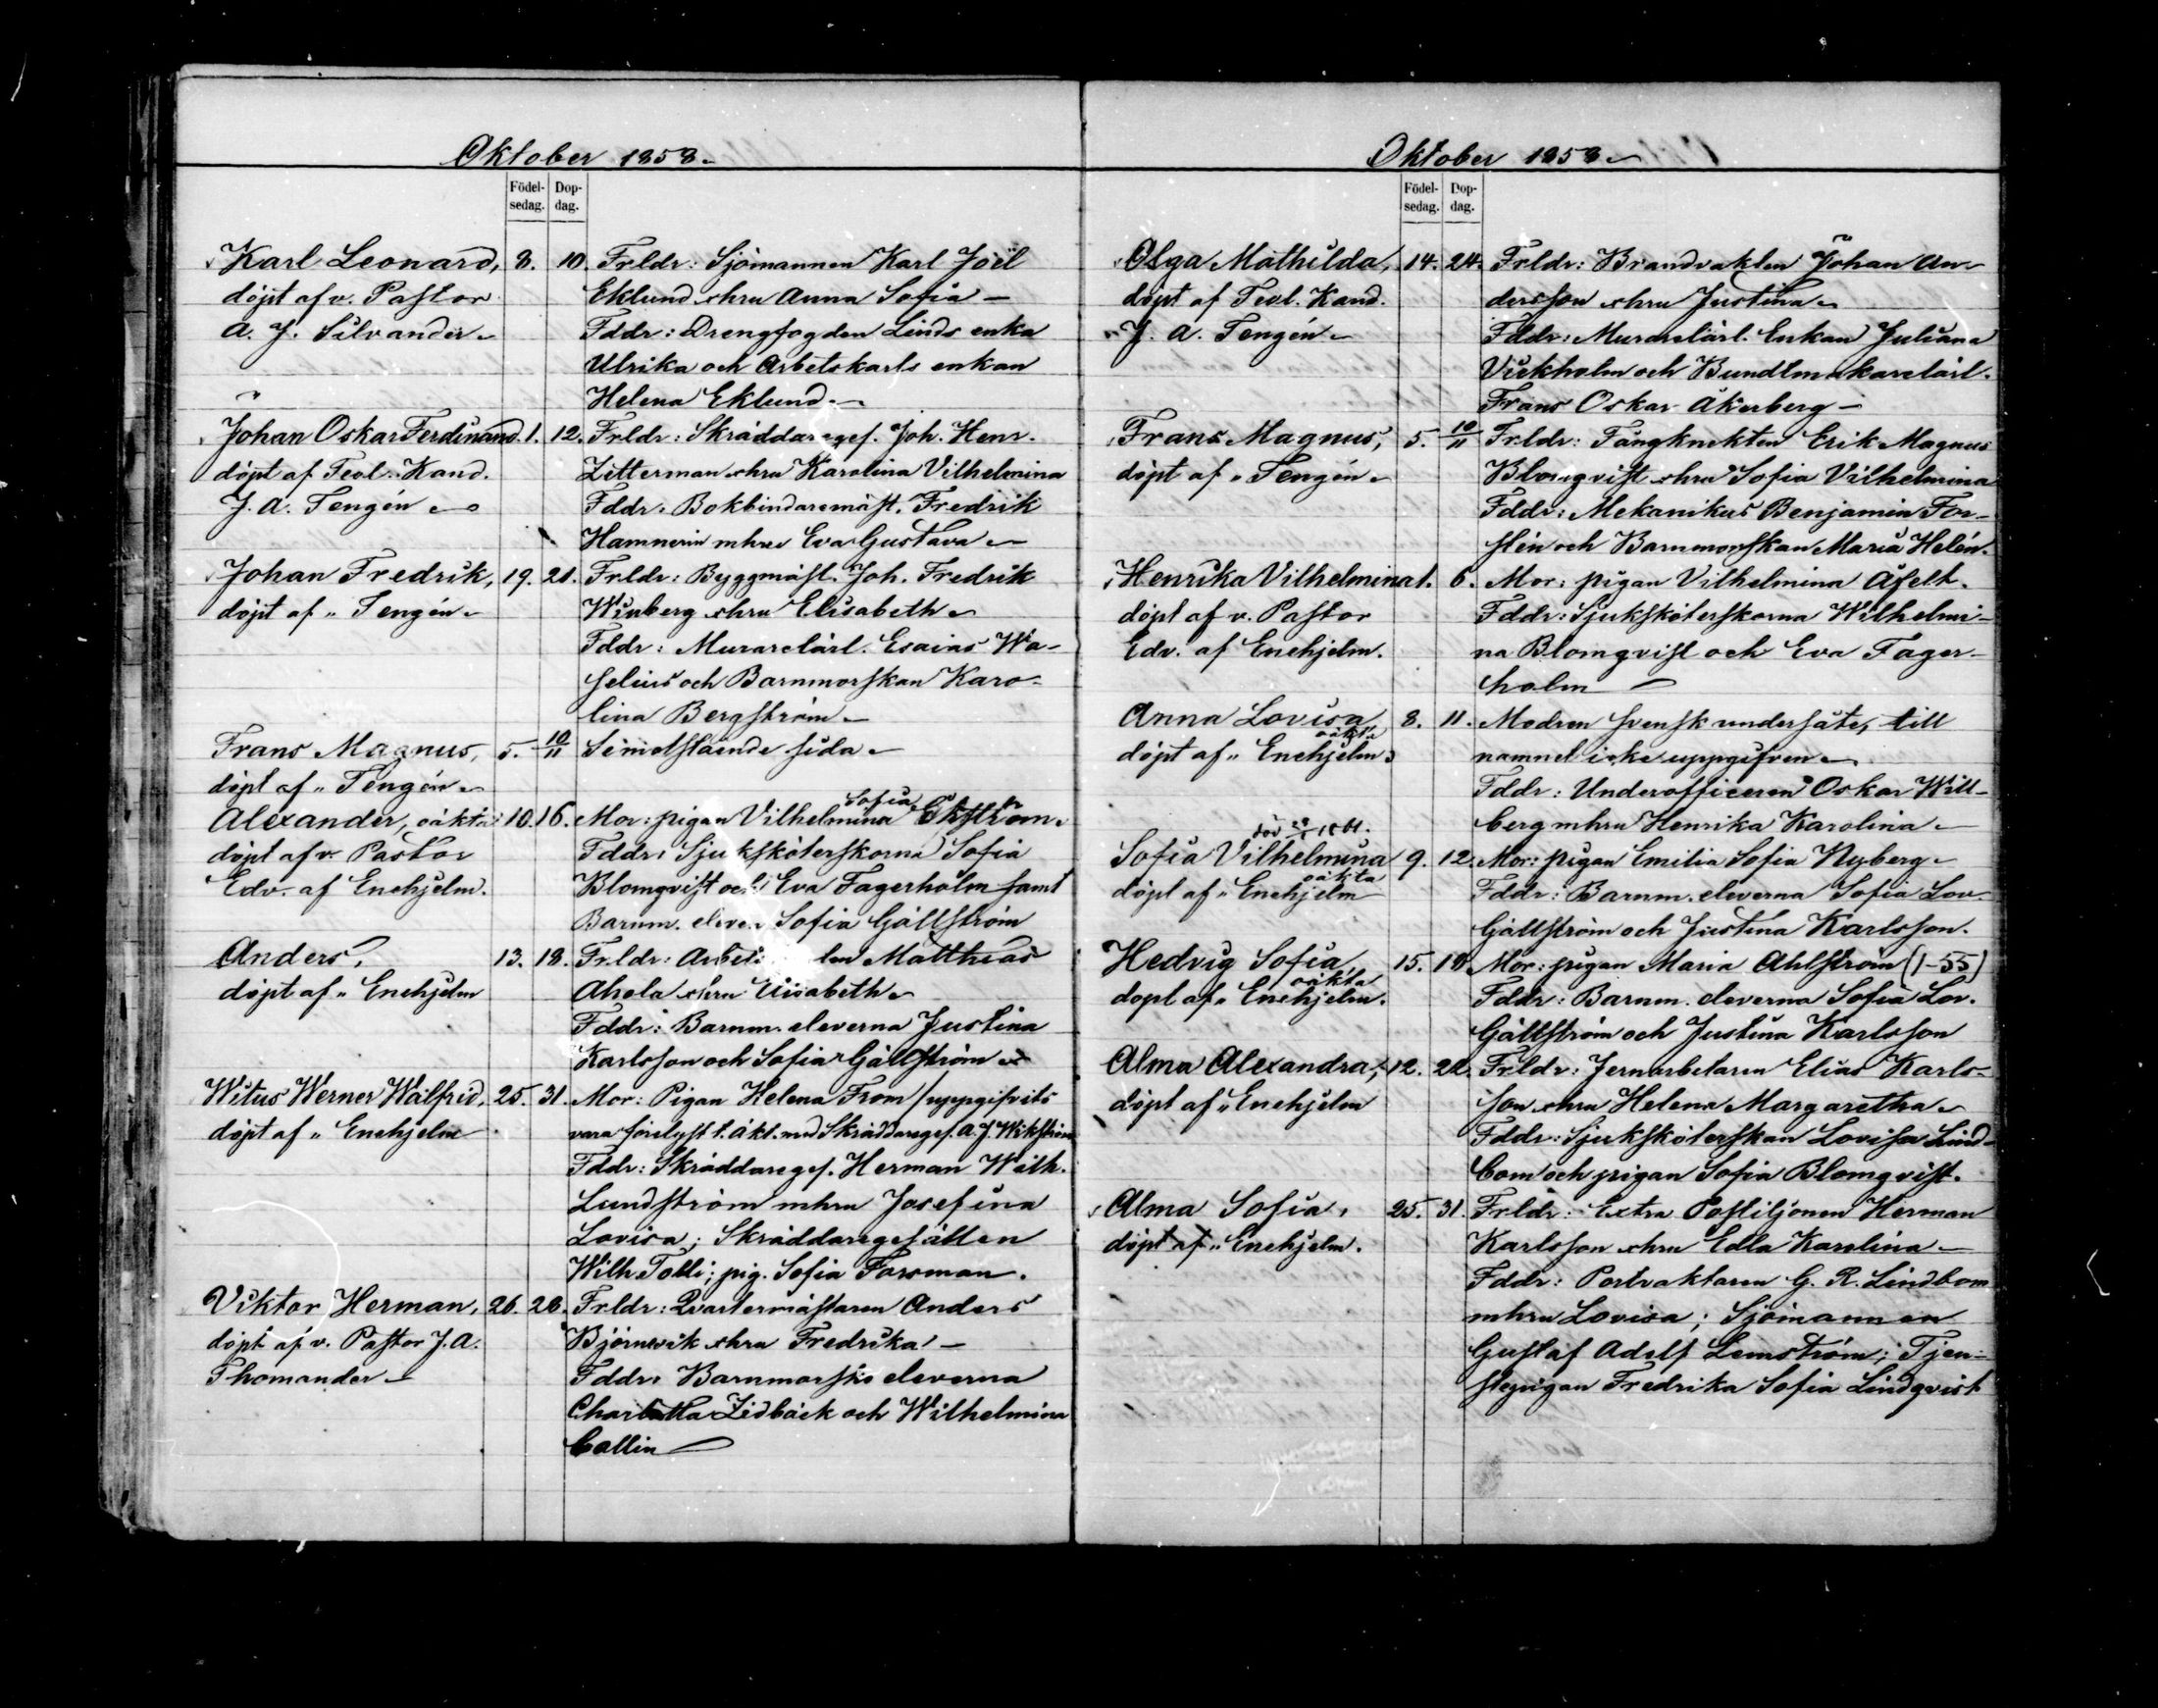 Oktober 1858
Födel-
sedag.
Dop-
dag.
Karl Leonard, 8. 10. Frldr: Sjömannen Karl Joël
döpt af v. Pastor Eklund o hru Anna Sofia —
A. J. Silvander Fddr: Drengfogden Linds enka
Ulrika och Arbetskarls enkan
Helena Eklund
Johan Oskar Ferdinand. 1. 12. Frldr: Skräddaregef. Joh. Henr.
döpt af Teol. Kand. Zitterman o hru Karolina Vilhelmina
J. A. Tengén Fddr: Bokbindaremäst. Fredrik
Hamnerin mhru Eva Gustava
Johan Fredrik, 19. 21. Frldr: Byggmäst. Joh. Fredrik
döpt af " Tengén Winberg o hru Elisabeth
Fddr: Murarelärl. Esaias Wa-
selius och Barnmorskan Karo-
lina Bergström
Frans Magnus, 5. 10/11 Se motstående sida
döpt af " Tengén
Alexander, oäkta 10. 16. Mor: pigan Vilhelmina Sofia Ekström
döpt af v. Pastor Fddr: Sjuksköterskorna Sofia
Edv. af Enehjelm. Blomqvist och Eva Fagerholm samt
Barnm. eleven Sofia Gällström
Anders, 13. 18. Frldr: Matthias
döpt af " Enehjelm Ahola o hru Elisabeth
Fddr: Barnm. eleverna Justina
Karlsson och Sofia Gällström
Witus Werner Walfrid, 25. 31. Mor: Pigan Helena From / uppgifvits
döpt af " Enehjelm vara förelyst t. äkt. med Skräddaregef. A. J. Wikström
Fddr: Skräddaregef. Herman Wilh.
Lundström mhru Josefina
Lovisa; Skräddaregesällen
Wilh. Tolli; pig. Sofia Forsman.
Viktor Herman, 26. 28. Frldr: Qvartermästaren Anders
döpt af v. Pastor J. A. Björnwik o hru Fredrika! —
Thomander Fddr: Barnmorske eleverna
Charlotta Zidbäck och Wilhelmina
Callin
Oktober 1858
Födel-
sedag.
Dop-
dag.
Olga Mathilda, 14. 24. Frldr: Brandvakten Johan An-
döpt af Teol. Kand. dersson o hru Justina
J. A. Tengén Fddr: Murarelärl. Enkan Juliana
Vickholm och Bundtmakarelärl.
Frans Oskar Åkerberg —
Frans Magnus, 5. 10/11 Frldr: Fångknekten Erik Magnus
döpt af " Tengén Blomqvist o hru Sofia Vilhelmina
Fddr: Mekanikus Benjamin For-
stén och Barnmorskan Maria Helén.
Henrika Vilhelmina 1. 6. Mor: pigan Vilhelmina Åfelt.
döpt af v. Pastor Fddr: Sjuksköterskorna Wilhelmi-
Edv. af Enehjelm. na Blomqvist och Eva Fager-
holm
Anna Lovisa 8. 11. Modren svensk undersåte, till
oäkta
döpt af " Enehjelm. namnet icke uppgifven
Fddr: Underofficeren Oskar Will-
berg mhru Henrika Karolina
död 28/1 1861.
Sofia Vilhelmina 9. 12. Mor: pigan Emilia Sofia Nyberg
oäkta
döpt af " Enehjelm Fddr: Barnm. eleverna Sofia Lov.
Gällström och Justina Karlsson.
Hedvig Sofia 15. 18. Mor: pigan Maria Ahlström (1-55)
oäkta
döpt af " Enehjelm. Fddr: Barnm. eleverna Sofia Lov.
Gällström och Justina Karlsson
Alma Alexandra, 12. 22. Frldr: Jernarbetaren Elias Karls-
döpt af " Enehjelm son o hru Helena Margaretha
Fddr: Sjuksköterskan Lovisa Lind-
bom och pigan Sofia Blomqvist.
Alma Sofia, 25. 31. Frldr: Extra Postiljonen Herman
döpt af " Enehjelm. Karlsson o hru Edla Karolina —
Fddr: Portvaktaren G. R. Lindbom
mhru Lovisa; Sjömannen
Gustaf Adolf Lemström; Tjen-
stepigan Fredrika Sofia Lindqvist